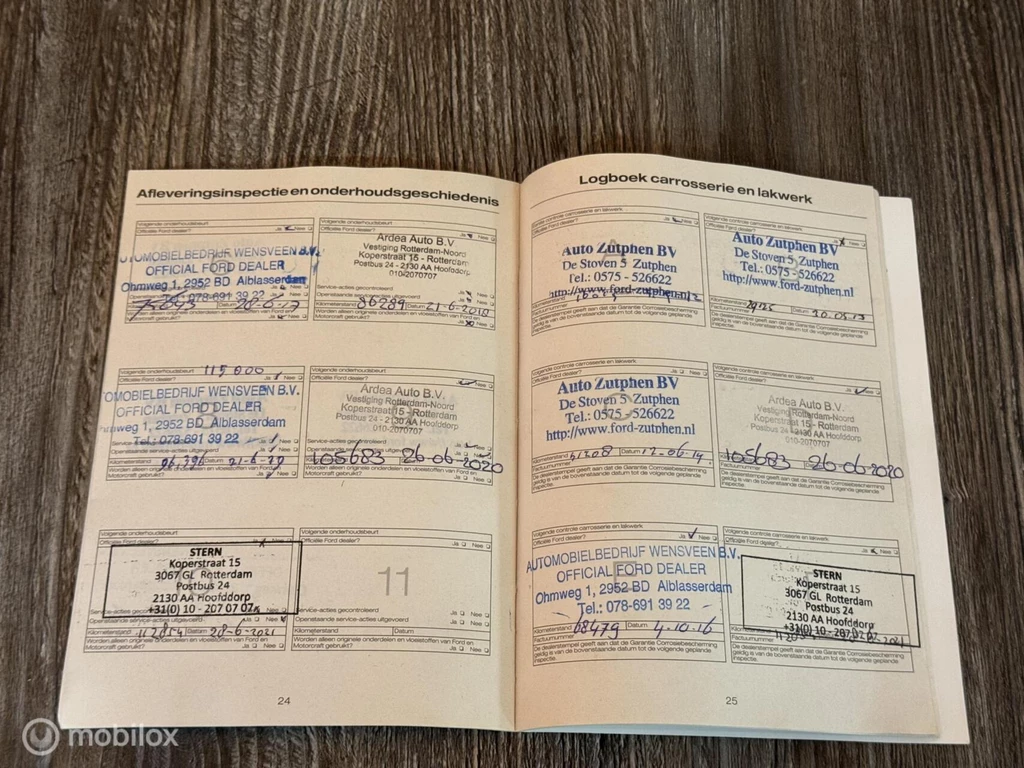 Afleveringsinspectie en onderhoudsgeschiedenis
Volgende onderhoudsbeurt
Officiële Ford dealer? Ja Nee
AUTOMOBIELBEDRIJF WENSVEEN B.V.
OFFICIAL FORD DEALER
Ohmweg 1, 2952 BD Alblasserdam
Tel.: 078-691 39 22
Kilometerstand Datum
Worden alleen originele onderdelen en vloeistoffen van Ford en
Motorcraft gebruikt? Ja Nee
Volgende onderhoudsbeurt
Officiële Ford dealer? Ja Nee
Ardea Auto B.V.
Vestiging Rotterdam-Noord
Koperstraat 15 - Rotterdam
Postbus 24 - 2130 AA Hoofddorp
010-2070707
Service-acties gecontroleerd Ja Nee
Openstaande service-acties uitgevoerd Ja Nee
Kilometerstand 86289 Datum 21-6-2018
Worden alleen originele onderdelen en vloeistoffen van Ford en
Motorcraft gebruikt? Ja Nee
Volgende onderhoudsbeurt 115000
Officiële Ford dealer? Ja Nee
AUTOMOBIELBEDRIJF WENSVEEN B.V.
OFFICIAL FORD DEALER
Ohmweg 1, 2952 BD Alblasserdam
Tel.: 078-691 39 22
Kilometerstand Datum
Worden alleen originele onderdelen en vloeistoffen van Ford en
Motorcraft gebruikt? Ja Nee
Officiële Ford dealer? Ja Nee
Ardea Auto B.V.
Vestiging Rotterdam-Noord
Koperstraat 15 - Rotterdam
Postbus 24 - 2130 AA Hoofddorp
010-2070707
Service-acties gecontroleerd Ja Nee
105683 26-06-2020
Worden alleen originele onderdelen en vloeistoffen van Ford en
Motorcraft gebruikt? Ja Nee
Volgende onderhoudsbeurt
Officiële Ford dealer? Ja Nee
STERN
Koperstraat 15
3067 GL Rotterdam
Postbus 24
2130 AA Hoofddorp
+31(0) 10 - 207 07 07
Service-acties gecontroleerd
Openstaande service-acties uitgevoerd Ja Nee
Kilometerstand 112854 Datum 28-6-2021
Worden alleen originele onderdelen en vloeistoffen van Ford en
Motorcraft gebruikt? Ja Nee
Volgende onderhoudsbeurt
Officiële Ford dealer? Ja Nee
11
Service-acties gecontroleerd Ja Nee
Openstaande service-acties uitgevoerd Ja Nee
Kilometerstand Datum
Worden alleen originele onderdelen en vloeistoffen van Ford en
Motorcraft gebruikt? Ja Nee
24
Logboek carrosserie en lakwerk
Volgende controle carrosserie en lakwerk
Officiële Ford dealer? Ja Nee
Auto Zutphen BV
De Stoven 5 Zutphen
Tel.: 0575 - 526622
http://www.ford-zutphen.nl
Factuurnummer
De dealerstempel geeft aan dat de Garantie Corrosiebescherming
geldig is van de bovenstaande datum tot de volgende geplande
inspectie.
Volgende controle carrosserie en lakwerk
Officiële Ford dealer? Ja Nee
Auto Zutphen BV
De Stoven 5 Zutphen
Tel.: 0575 - 526622
http://www.ford-zutphen.nl
Kilometerstand Datum
Factuurnummer
De dealerstempel geeft aan dat de Garantie Corrosiebescherming
geldig is van de bovenstaande datum tot de volgende geplande
inspectie.
Volgende controle carrosserie en lakwerk
Officiële Ford dealer? Ja Nee
Auto Zutphen BV
De Stoven 5 Zutphen
Tel.: 0575 - 526622
http://www.ford-zutphen.nl
Kilometerstand 51208 Datum 12-06-14
Factuurnummer
De dealerstempel geeft aan dat de Garantie Corrosiebescherming
geldig is van de bovenstaande datum tot de volgende geplande
inspectie.
Volgende controle carrosserie en lakwerk
Officiële Ford dealer? Ja Nee
Ardea Auto B.V.
Vestiging Rotterdam-Noord
Koperstraat 15 - Rotterdam
Postbus 24 - 2130 AA Hoofddorp
010-2070707
105683 26-06-2020
Factuurnummer
De dealerstempel geeft aan dat de Garantie Corrosiebescherming
geldig is van de bovenstaande datum tot de volgende geplande
inspectie.
Volgende controle carrosserie en lakwerk
Officiële Ford dealer? Ja Nee
AUTOMOBIELBEDRIJF WENSVEEN B.V.
OFFICIAL FORD DEALER
Ohmweg 1, 2952 BD Alblasserdam
Tel.: 078-691 39 22
Kilometerstand 68479 Datum 4-10-16
Factuurnummer
De dealerstempel geeft aan dat de Garantie Corrosiebescherming
geldig is van de bovenstaande datum tot de volgende geplande
inspectie.
Volgende controle carrosserie en lakwerk
Officiële Ford dealer? Ja Nee
STERN
Koperstraat 15
3067 GL Rotterdam
Postbus 24
2130 AA Hoofddorp
+31(0) 10 - 207 07 07
Kilometerstand
Factuurnummer
De dealerstempel geeft aan dat de Garantie Corrosiebescherming
geldig is van de bovenstaande datum tot de volgende geplande
inspectie.
25
mobilox